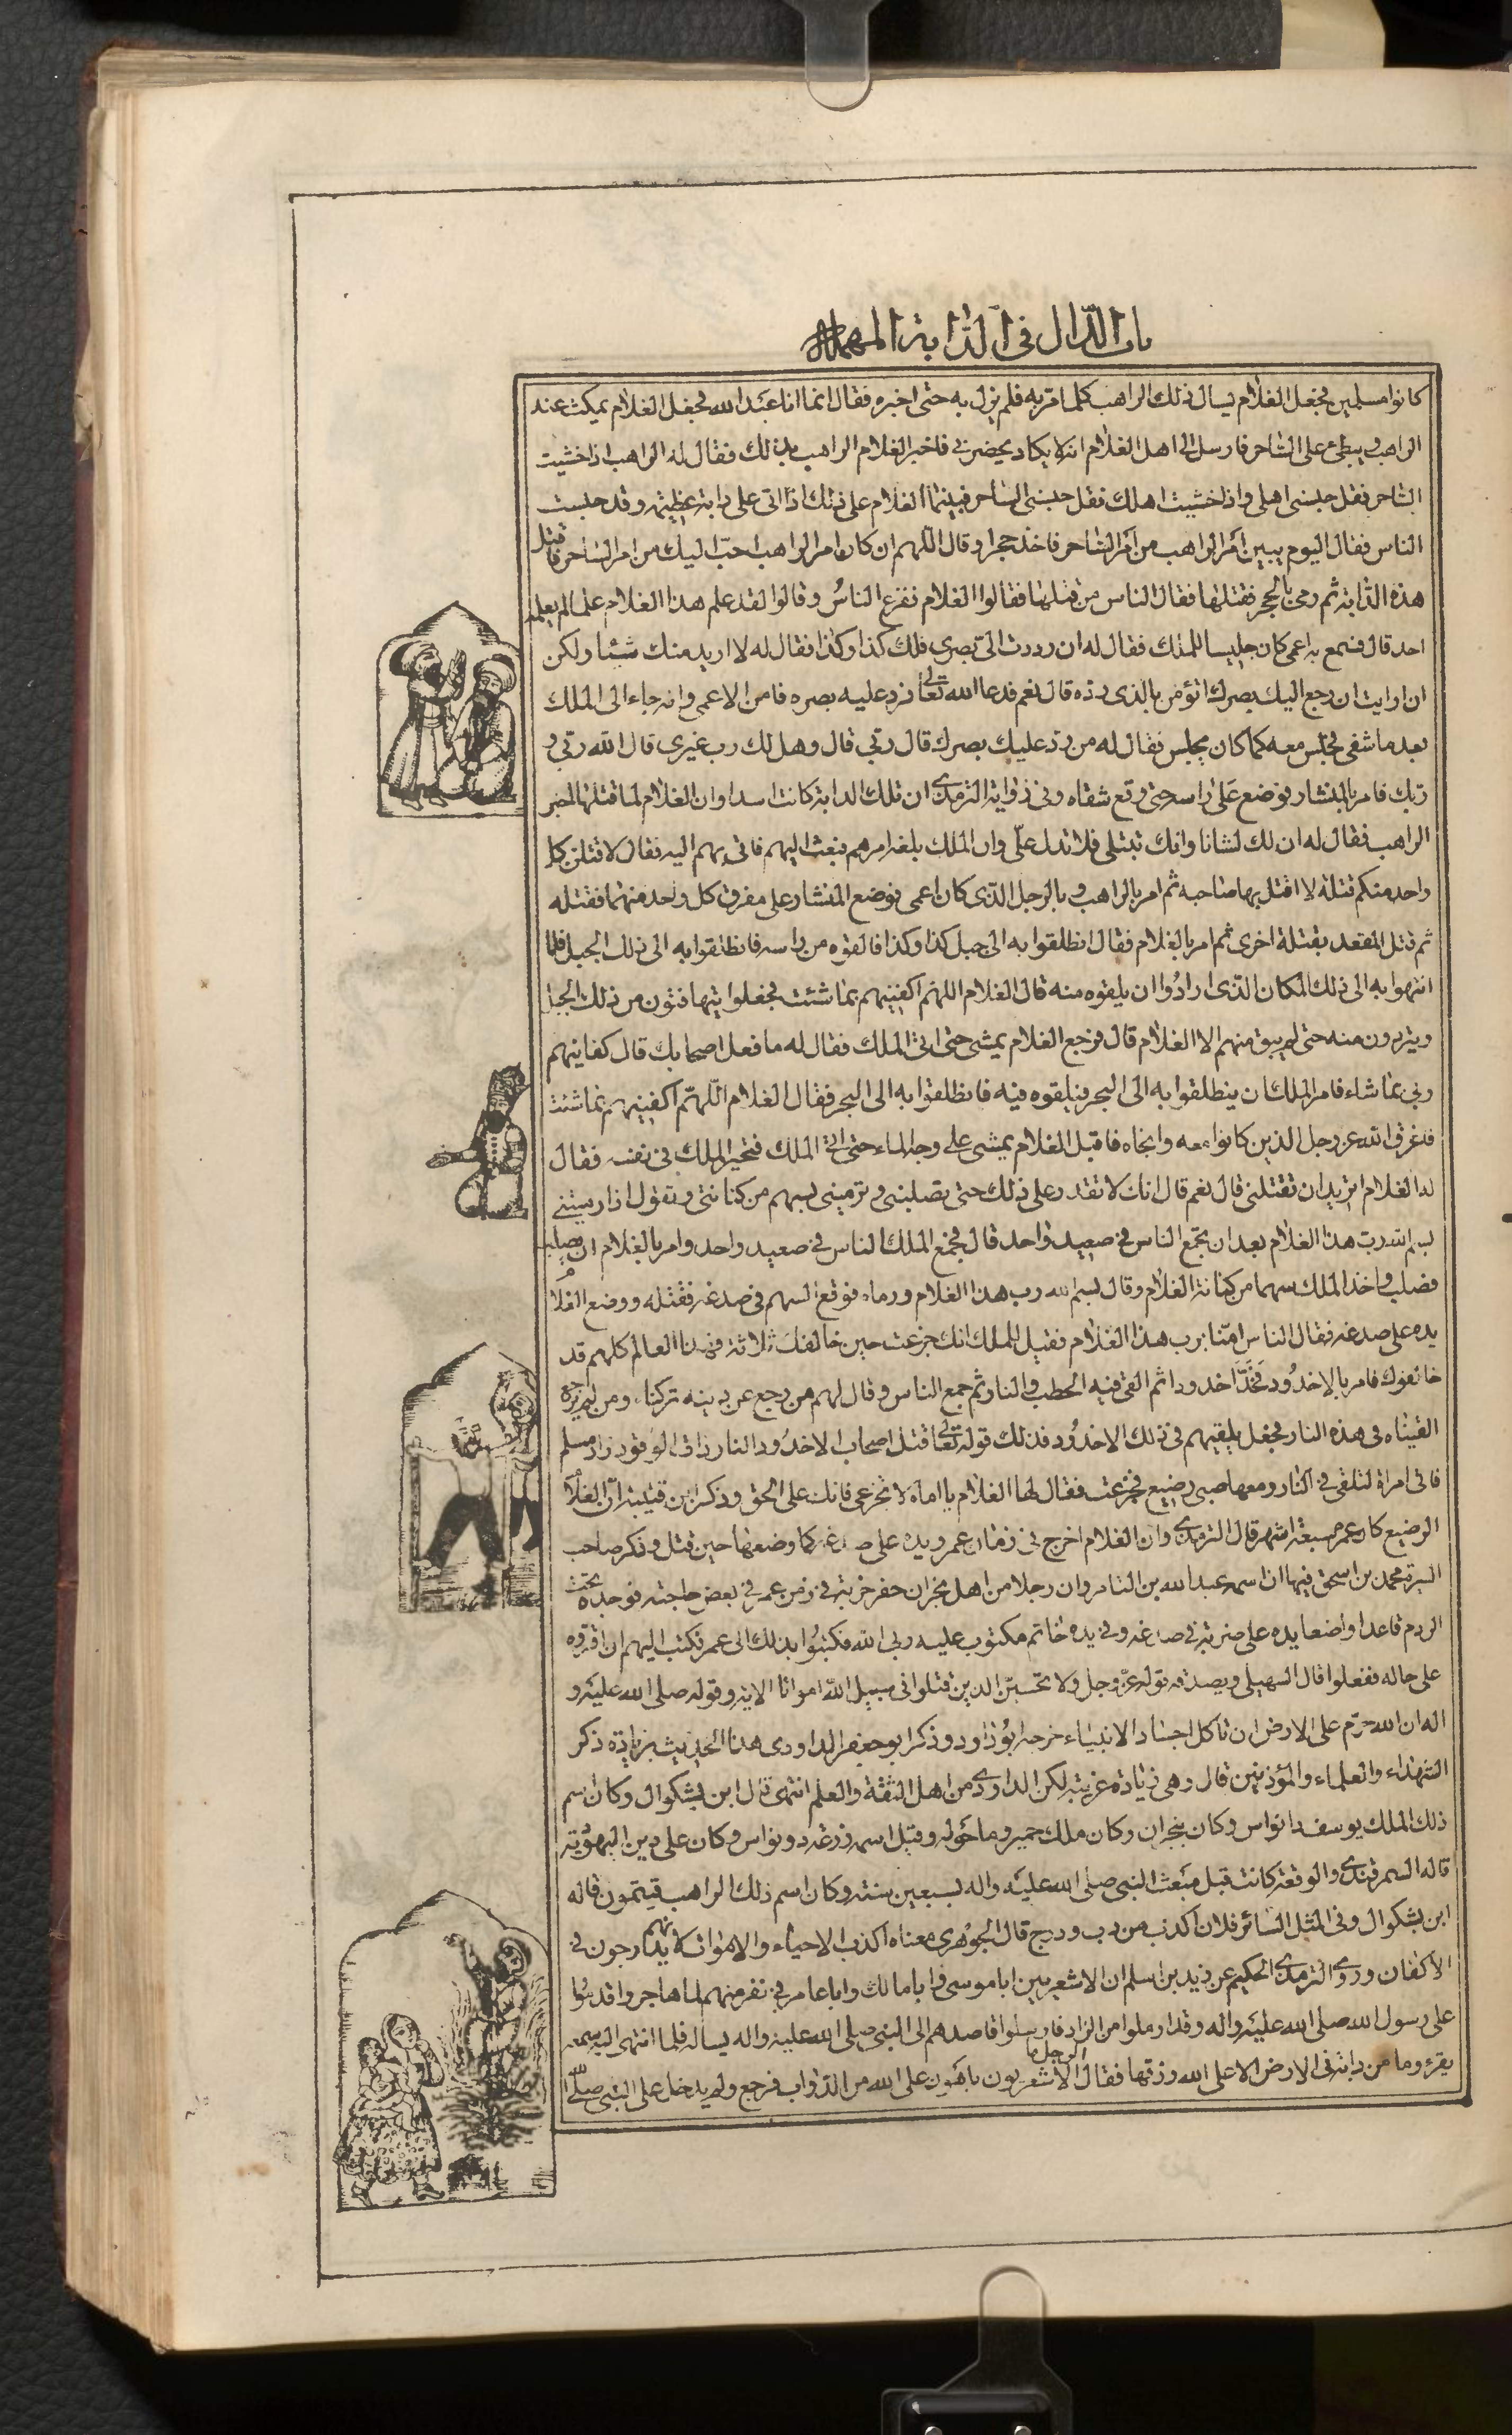 باب الدّال فى الدّابة المهملة
كانوا مسلمين فجعل الغلام يسال ذلك الراهب كلما مرّ به فلم يزل به حتى اخبره فقال انما انا عبد الله فجعل الغلام يمكث عند
الراهب ويبطئ على الساحر فارسل الى اهل الغلام انه لا يكاد يحضرنى فاخبر الغلام الراهب بذلك فقال له الراهب اذا خشيت
الساحر فقل حبسنى اهلى واذا خشيت اهلك فقل حبسنى الساحر فبينما الغلام على ذلك اذ اتى على دابة عظيمة وقد حبست
الناس فقال اليوم يبين امر الراهب من امر الساحر فاخذ حجرا وقال اللهم ان كان امر الراهب احبّ اليك من امر الساحر فاقتل
هذه الدّابة ثم رمى بالحجر فقتلها فقال الناس من قتلها فقالوا الغلام ففزع الناسُ وقالوا لقد علم هذا الغلام علما لم يعلمه
احد قال فسمع به اعمى كان جليسا للملك فقال له ان رددت الىّ بصرى فلك كذا وكذا فقال له لا اريد منك شيئا ولكن
ان ارايت ان رجع اليك بصرك اتؤمن بالذى ردّه قال نعم فدعا الله تعالى فرد عليه بصره فامن الاعمى وانه جاء الى الملك
بعد ما شفى فجلس معه كما كان يجلس فقال له من ردّ عليك بصرك قال ربّى قال وهل لك رب غيرى قال الله ربّى و
ربّك فامر بالمنشار فوضع على راسه حتى وقع شقاه وفى رواية الترمذى ان تلك الدابة كانت اسدا وان الغلام لما قتلها اخبر
الراهب فقال له ان لك لشانا وانك تبتلى فلا تدل علىّ وان الملك بلغه امرهم فبعث اليهم فاتى بهم اليه فقال لاقتلن كل
واحد منكم قتلة لا اقتل بها صاحبه ثم امر بالراهب وبالرجل الذى كان اعمى فوضع المنشار على مفرق كل واحد منهما فقتله
ثم قتل المقعد بقتلة اخرى ثم امر بالغلام فقال انطلقوا به الى جبل كذا وكذا فالقوه من راسه فانطلقوا به الى ذلك الجبل فلما
انتهوا به الى ذلك المكان الذى ارادُوا ان يلقوه منه قال الغلام اللهم اكفنيهم بما شئت فجعلوا يتهافتون من ذلك الجبل
ويتردون منه حتى لم يبق منهم الا الغلام قال فرجع الغلام يمشى حتى اتى الملك فقال له ما فعل اصحابك قال كفانيهم
ربى بما شاء فامر الملك ان ينطلقوا به الى البحر فيلقوه فيه فانطلقوا به الى البحر فقال الغلام اللهمّ اكفنيهم بما شئت
فغرق الله عز وجل الذين كانوا معه وانجاه فاقبل الغلام يمشى على وجه الماء حتى اتى الملك فتحير الملك فى نفسه فقال
له الغلام اتريد ان تقتلنى قال نعم قال انك لا تقدر على ذلك حتى تصلبنى وترمينى بسهم من كنانتى وتقول اذا رميتنى
بسم الله رب هذا الغلام بعد ان تجمع الناس فى صعيد واحد قال فجمع الملك الناس فى صعيد واحد وامر بالغلام ان يصلب
فصلب واخذ الملك سهما من كنانة الغلام وقال بسم الله رب هذا الغلام ورماه فوقع السهم فى صدغه فقتله ووضع الغلام
يده على صدغه فقال الناس امنا برب هذا الغلام فقيل للملك انك جزعت حين خالفك ثلاثة فهذا العالم كلهم قد
خالفوك فامر بالاخدُود فخُدّ اخدودا ثم القى فيه الحطب والنار ثم جمع الناس وقال لهم من رجع عن دينه تركناه ومن لم يرجع
القيناه فى هذه النار فجعل يلقيهم فى ذلك الاخدُود فذلك قوله تعالى قتل اصحاب الاخدُود النار ذات الوقود زاد مسلم
فاتى امراة لتلقى فى النار ومعها صبى رضيع فجزعت فقال لها الغلام يا اماه لا تجزعى فانك على الحق وذكر ابن قتيبة ان الغلام
الرضيع كان عمره سبعة اشهر قال الترمذى وان الغلام اخرج فى زمان عمر ويده على صدغه كما وضعها حين قتل وذكر صاحب
السيرة محمد بن اسحق فيها ان اسمه عبد الله بن التامر وان رجلا من اهل نجران حفر خربة فى زمن عمر فى بعض حاجته فوجده تحت
الردم قاعدا واضعا يده على ضربة فى صدغه وفى يده خاتم مكتوب عليه ربى الله فكتبُوا بذلك الى عمر فكتب اليهم ان اقرّوه
على حاله ففعلوا قال السهيلى ويصدقه قوله عزّ وجل ولا تحسبنّ الذين قتلوا فى سبيل الله امواتا الاية وقوله صلى الله عليه و
اله ان الله حرّم على الارض ان تاكل اجساد الانبياء خرجه ابوُ داود وذكر ابو جعفر الداودى هذا الحديث بزيادة ذكر
الشهداء والعلماء والمؤذنين قال وهى زيادة غريبة لكن الداودى من اهل الثقة والعلم انتهى قال ابن بشكوال وكان اسم
ذلك الملك يوسف ذا نواس وكان بنجران وكان ملك حمير وما حوله وقيل اسمه زرعة ذو نواس وكان على دين اليهوديّة
قاله السمرقندى والوقعة كانت قبل مبعث النبى صلى الله عليه واله بسبعين سنة وكان اسم ذلك الراهب قيتمون قاله
ابن بشكوال وفى المثل السائر فلان اكذب من دب ودرج قال الجوهرى معناه اكذب الاحياء والاموات لانهم يدارجون فى
الاكفان وروى الترمذى الحكيم عن زيد بن اسلم ان الاشعريين ابا موسى وابا مالك وابا عامر فى نفر منهم لما هاجروا قدمُوا
على رسول الله صلى الله عليه واله وقد ارملوا من الزاد فارسلوا قاصدهم الى النبى صلى الله عليه واله يساله فلما انتهى اليه سمعه
يقرء وما من دابة فى الارض الا على الله رزقها فقال الرجل ما الاشعريون باهون على الله من الدّواب فرجع ولم يدخل على النبى صلى الله